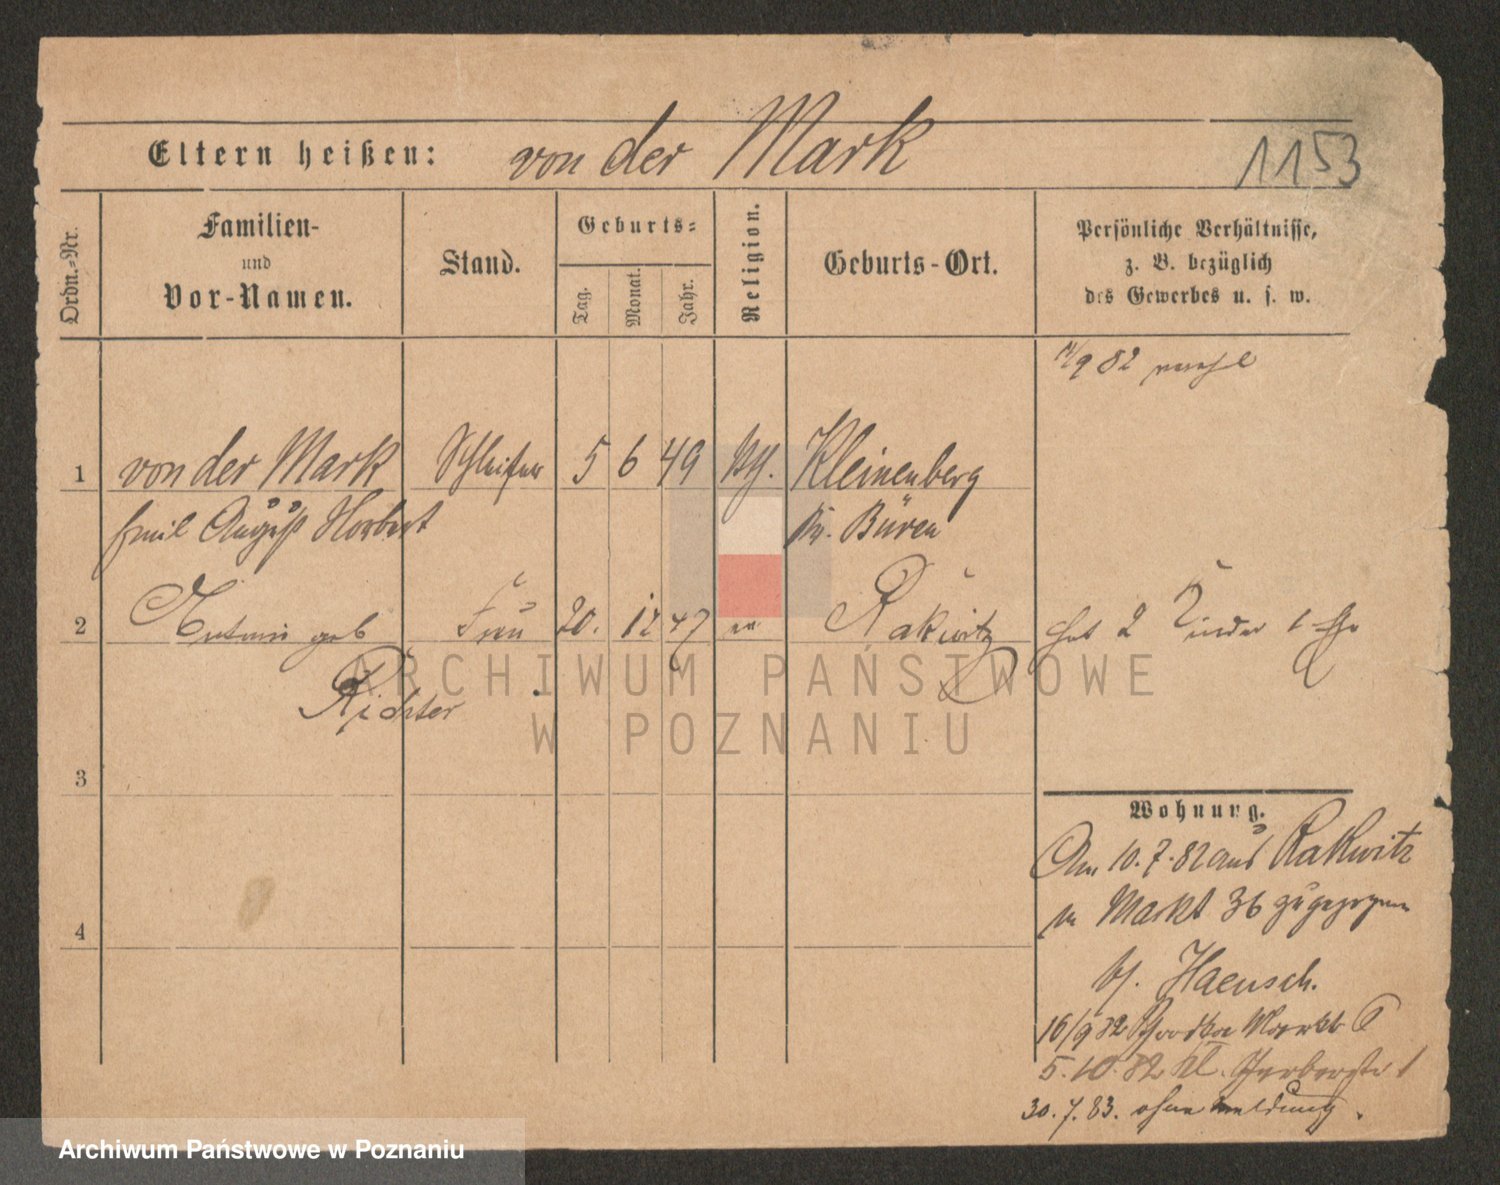 Eltern heißen: von der Mark
1153
Ordn.-Nr.
Familien-
und
Vor-Namen.
Stand.
Geburts-
Tag.
Monat.
Jahr.
Religion.
Geburts-Ort.
Persönliche Verhältnisse,
z. B. bezüglich
des Gewerbes u. s. w.
/9 82
1 von der Mark Schleifer 5 6 49 Kleinenberg
Emil August Norbert Kr. Büren
2 Antonie geb Frau 20. 12 47 ev. Rakwitz hat 2 Kinder 1 Ehe
Richter
ARCHIWUM PAŃSTWOWE
W POZNANIU
3
4
Wohnung.
Am 10.7.82 aus Rakwitz
n Markt 36 zugezogen
b. Haensch.
16/9 82 Markt 6
5.10.82 Kl. Gerberstr 1
30.7.83. ohne Meldung.
Archiwum Państwowe w Poznaniu